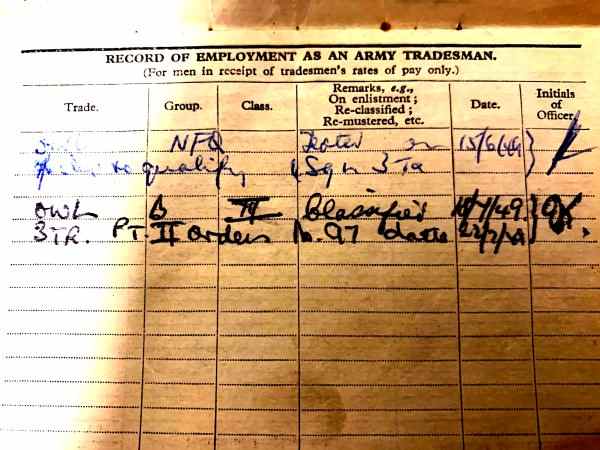 RECORD OF EMPLOYMENT AS AN ARMY TRADESMAN.
(For men in receipt of tradesmen's rates of pay only.)
Trade. Group. Class. Remarks, e.g., On enlistment; Re-classified; Re-mustered, etc. Date. Initials of Officer
NFQ Tested on 15/6/49
to qualify Sqn 3 TR
OWL B III Classified /7/49
3TR. PT. II orders No. 97 dated